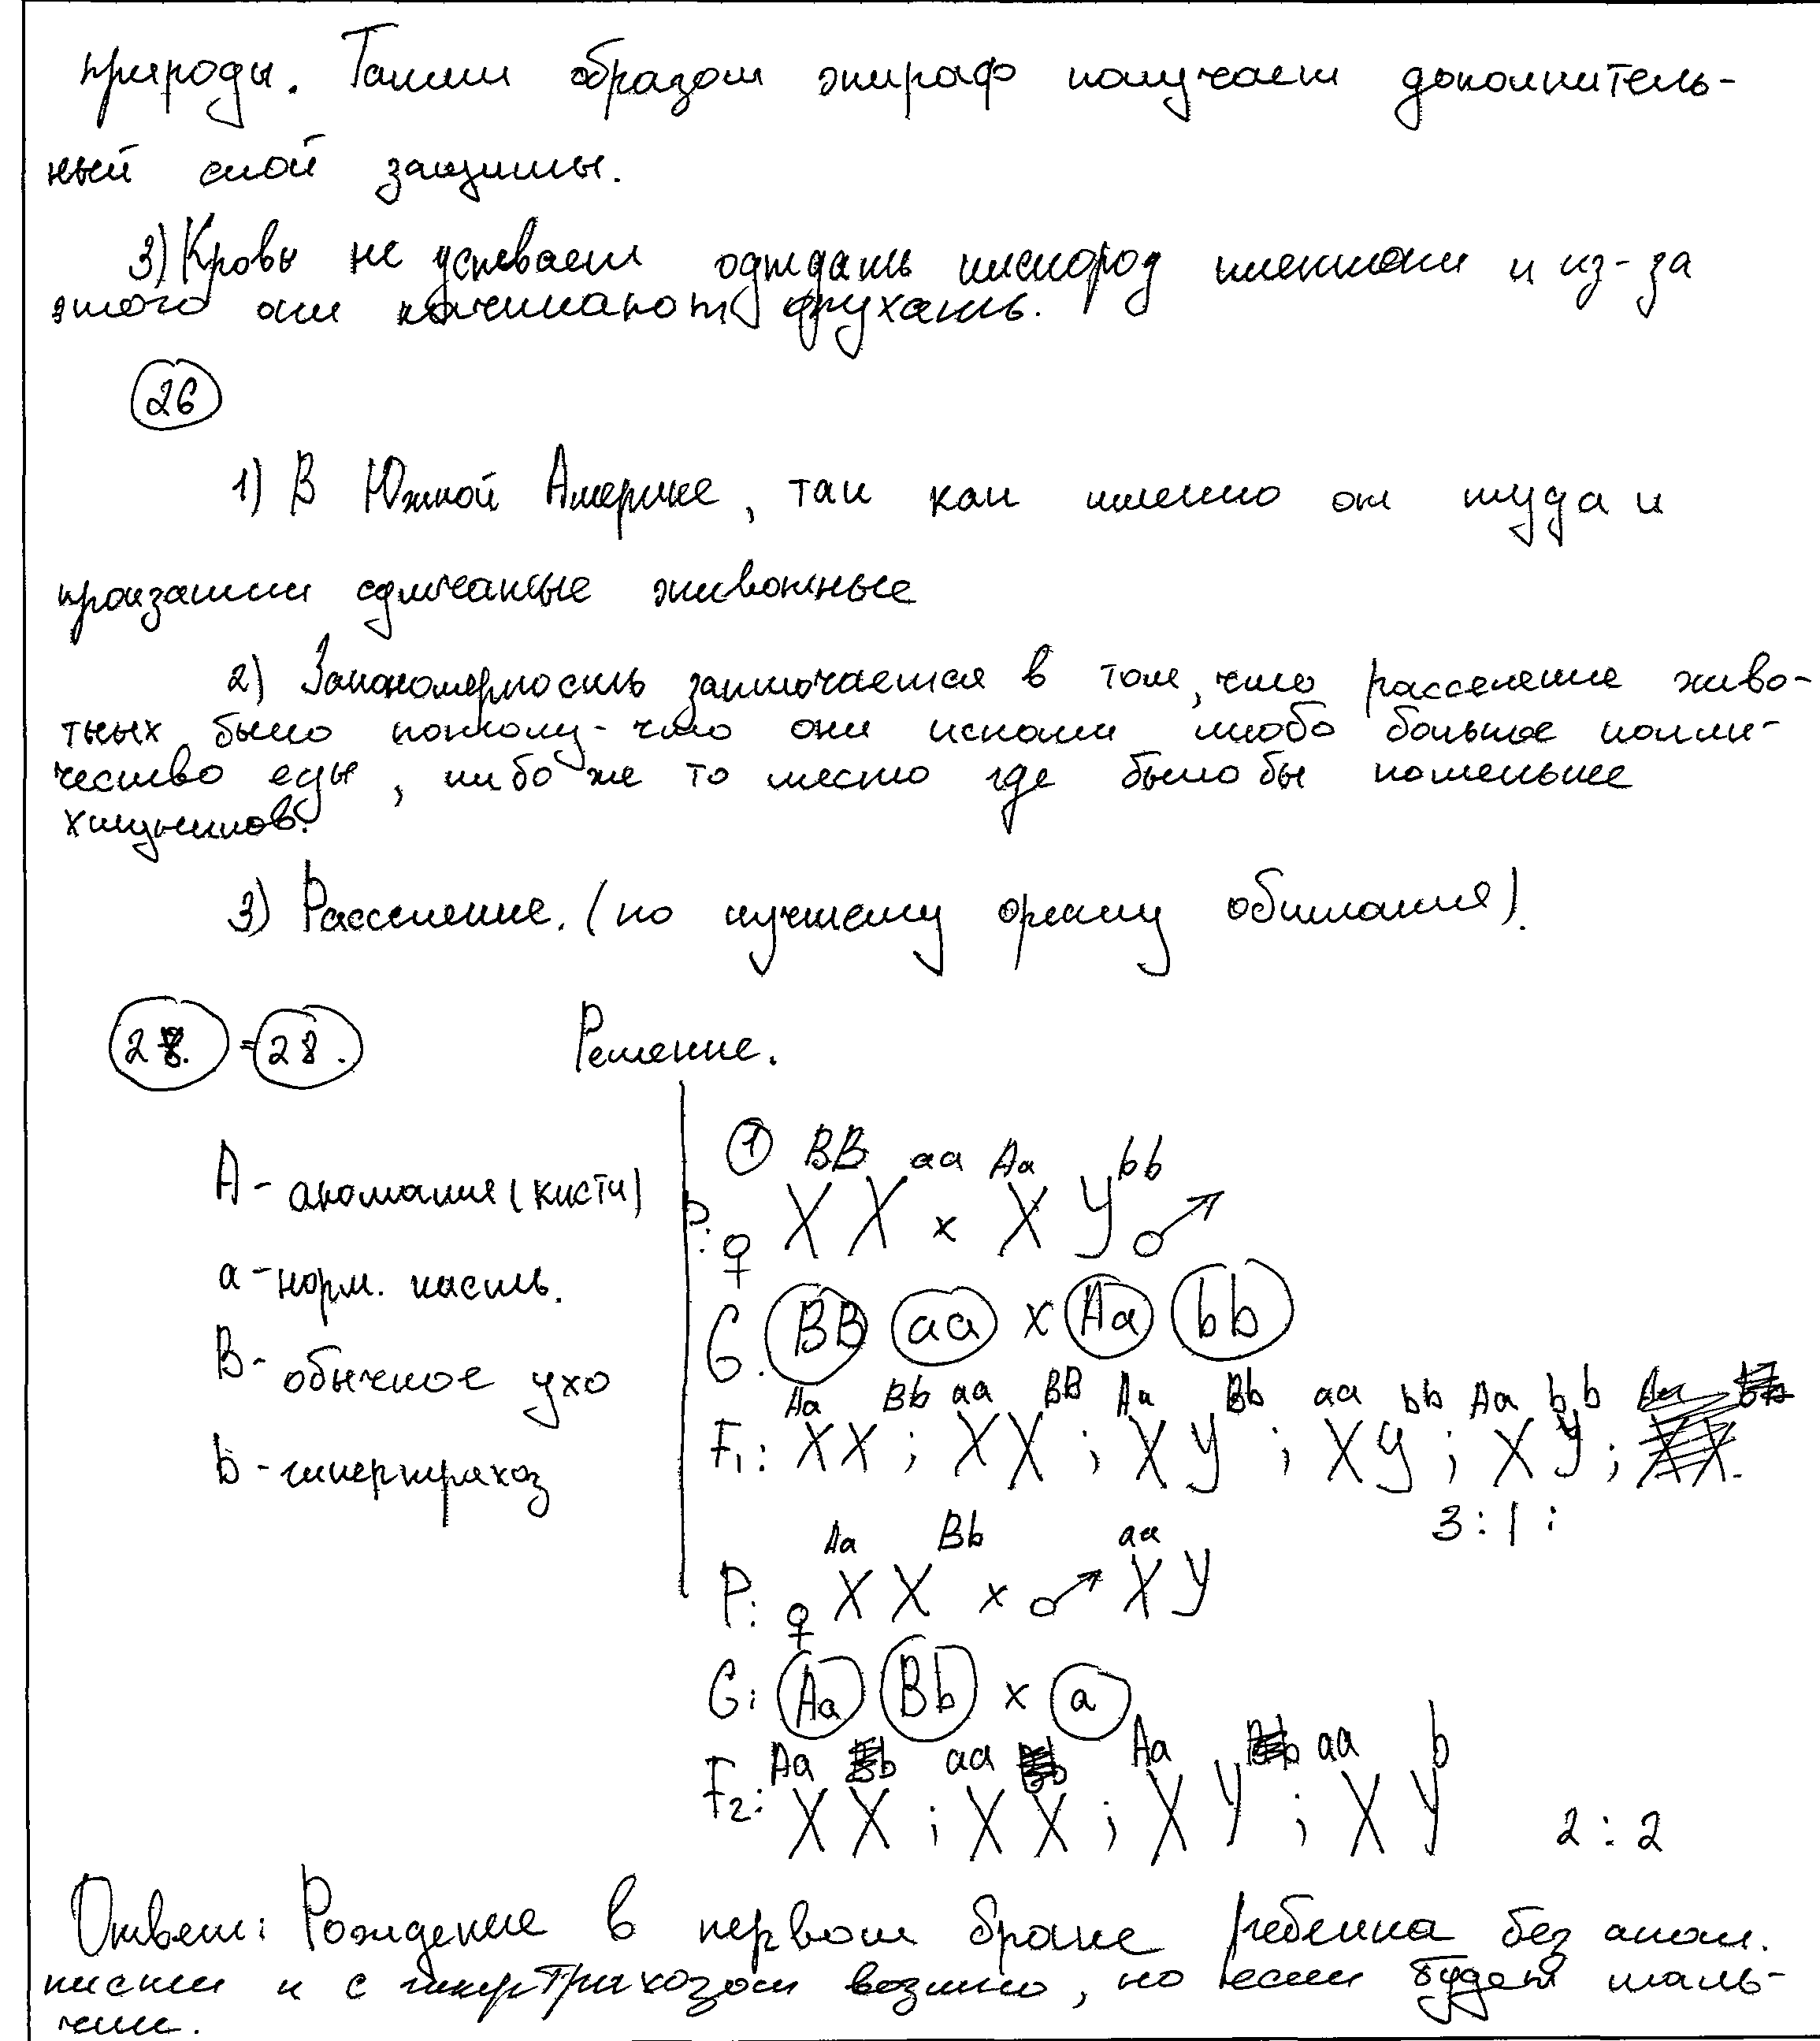 природы. Таким образом жираф получает дополнитель-
ный слой защиты.
3) Кровь не успевает отдать кислород клеткам и из-за
этого они начинают
26
1) В Южной Америке, так как именно от туда и
произашли одичаные животные
2) Закономерность заключается в том, что расселение живо-
тных было потому-что они искали либо большое колли-
чество еды, либо же то место где было бы поменьше
хищников.
3) Расселение. (по лучшему ореалу обитания).
28. = 28. Решение.
А - аномалия (кисти)
а - норм. кисть.
В - обычное ухо
b - гипертрихоз
① BB aa Aa bb
P: ♀ X X x X Y ♂
G. BB aa x Aa bb
Aa Bb aa BB Aa Bb aa bb Aa bb
F1: XX ; XX ; XY ; XY ; XY ;
3 : 1 :
Aa Bb aa
P: ♀ X X x ♂ X Y
G: Aa Bb x a
Aa aa Aa aa b
F2: XX ; XX ; XY ; XY 2 : 2
Ответ: Рождение в первом браке ребенка без аном.
кисти и с гипертрихозом возможно, но если будет маль-
чик.